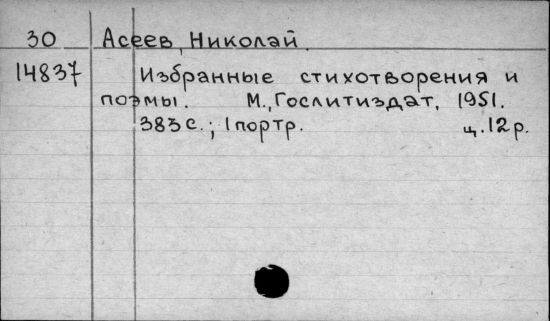 30 Асеев, Николай.
14837 Избранные стихотворения и
поэмы. М., Гослитиздат, 1951.
383 с.; 1 портр. ц. 12 р.